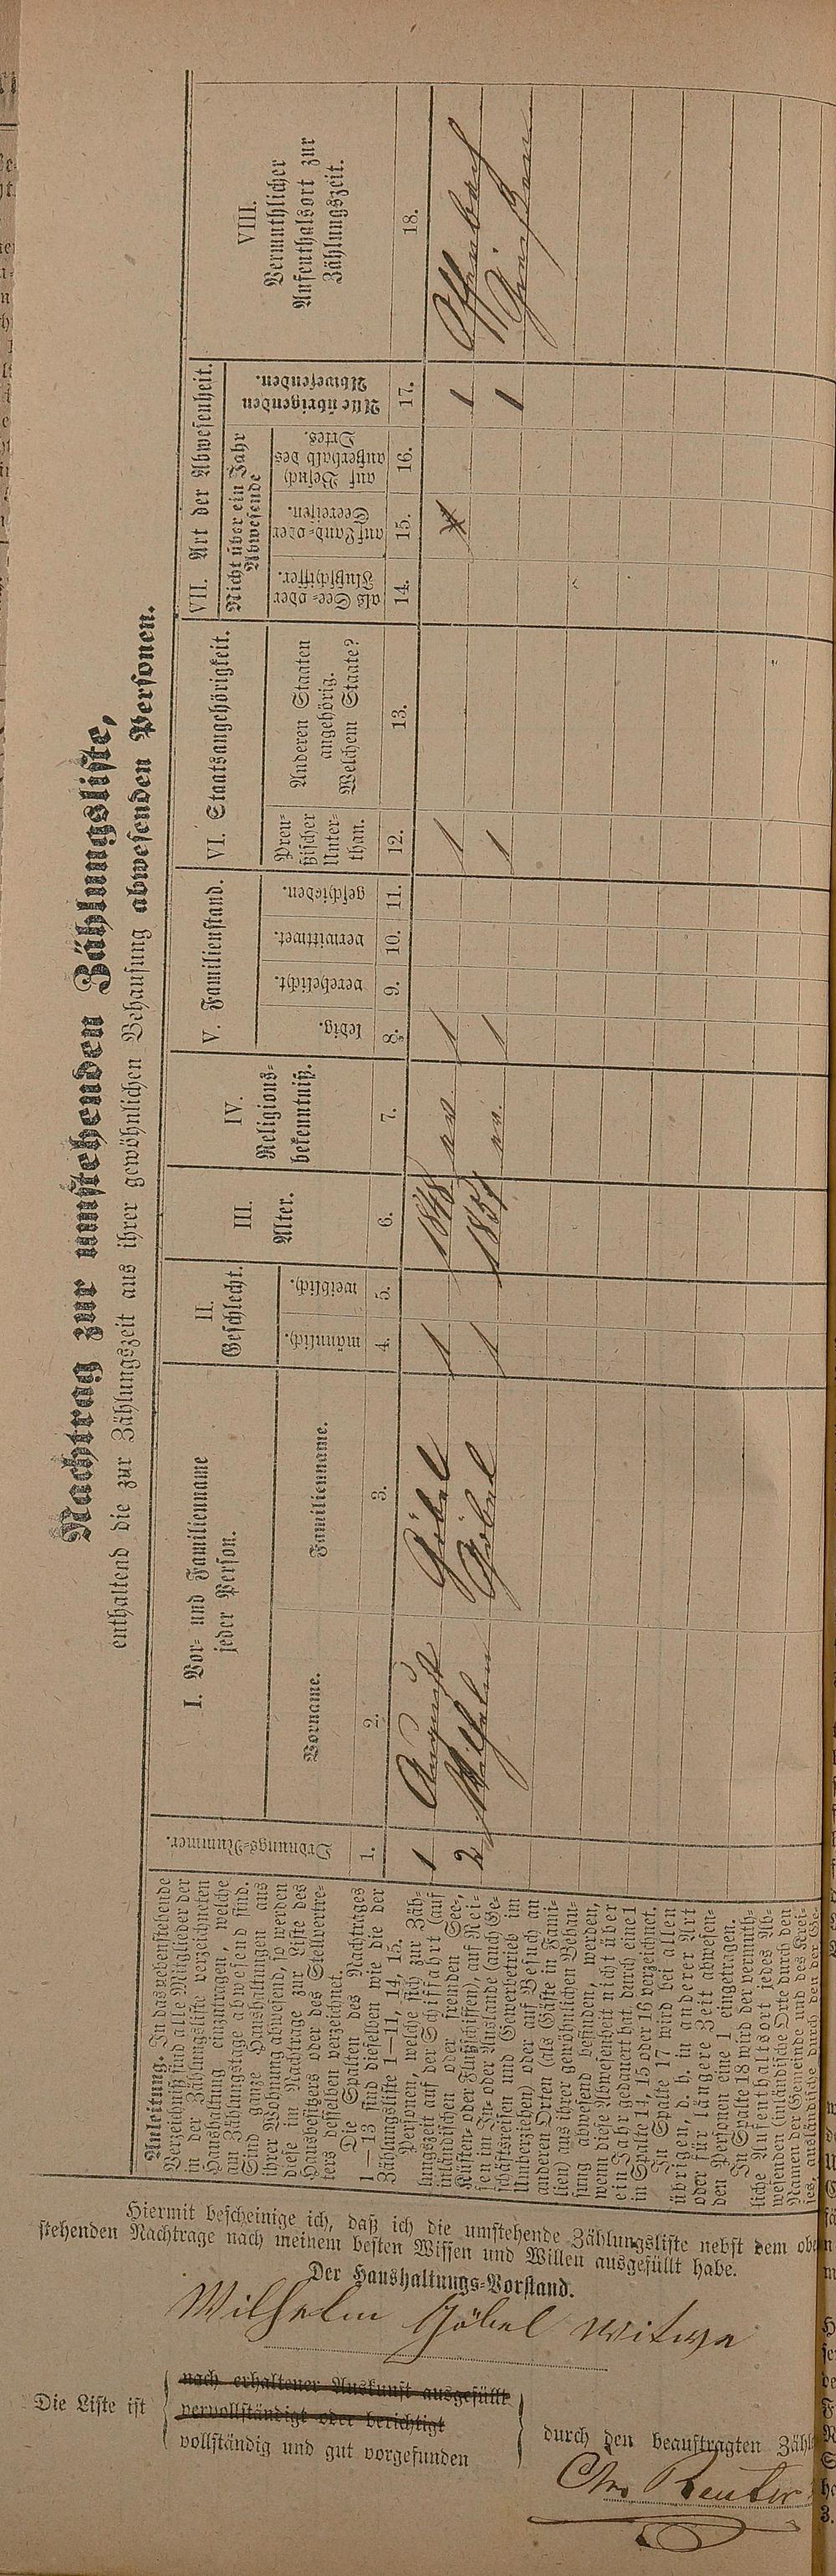 Nachtrag zur umstehenden Zählungsliste,
enthaltend die zur Zählungszeit aus ihrer gewöhnlichen Behausung abwesenden Personen.
Anleitung. In das nebenstehende
Verzeichniß sind alle Mitglieder der
in der Zählungsliste verzeichneten
Haushaltung einzutragen, welche
am Zählungstage abwesend sind.
Sind ganze Haushaltungen aus
ihrer Wohnung abwesend, so werden
diese im Nachtrage zur Liste des
Hausbesitzers oder des Stellvertre-
ters desselben verzeichnet.
Die Spalten des Nachtrages
1—13 sind dieselben wie die der
Zählungsliste 1—11, 14, 15.
Personen, welche sich zur Zäh-
lungszeit auf der Schiffahrt (auf
inländischen oder fremden See-,
Küsten- oder Flußschiffen), auf Rei-
sen im In- oder Auslande (auch Ge-
schäftsreisen und Gewerbetrieb im
Umherziehen) oder auf Besuch an
anderen Orten (als Gäste in Fami-
lien) aus ihrer gewöhnlichen Behau-
sung abwesend befinden, werden,
wenn diese Abwesenheit nicht über
ein Jahr gedauert hat, durch eine 1
in Spalte 14, 15 oder 16 verzeichnet.
In Spalte 17 wird bei allen
übrigen, d. h. in anderer Art
oder für längere Zeit abwesen-
den Personen eine 1 eingetragen.
In Spalte 18 wird der vermuth-
liche Aufenthaltsort jedes Ab-
wesenden (inländische Orte durch den
Namen der Gemeinde und des Krei-
ses, ausländische durch den der Ge-
Ordnungs-Nummer.
I. Vor- und Familienname
jeder Person.
Vorname.
Familienname.
II.
Geschlecht.
männlich.
weiblich.
III.
Alter.
IV.
Religions-
bekenntniß.
V. Familienstand.
ledig.
verehelicht.
verwittwet.
geschieden.
VI. Staatsangehörigkeit.
Preu-
ßischer
Unter-
than.
Anderen Staaten
angehörig.
Welchem Staate?
VII. Art der Abwesenheit.
Nicht über ein Jahr
Abwesende
als See- oder
Flußschiffer.
auf Land- oder
Seereisen.
auf Besuch
außerhalb des
Ortes.
Alle übrigen
Abwesenden.
VIII.
Vermuthlicher
Aufenthaltsort zur
Zählungszeit.
1. 2. 3. 4. 5. 6. 7. 8. 9. 10. 11. 12. 13. 14. 15. 16. 17. 18.
1 August Göbel 1 1848 ev 1 1 1 Offenbach
2 Wilhelm Göbel 1 1851 ev. 1 1 1 Gießen
Hiermit bescheinige ich, daß ich die umstehende Zählungsliste nebst dem oben
stehenden Nachtrage nach meinem besten Wissen und Willen ausgefüllt habe.
Der Haushaltungs-Vorstand.
Wilhelm Göbel Witwe
Die Liste ist
nach erhaltener Auskunft ausgefüllt
vervollständigt oder berichtigt
vollständig und gut vorgefunden
durch den beauftragten Zähl
Chr. Reuter